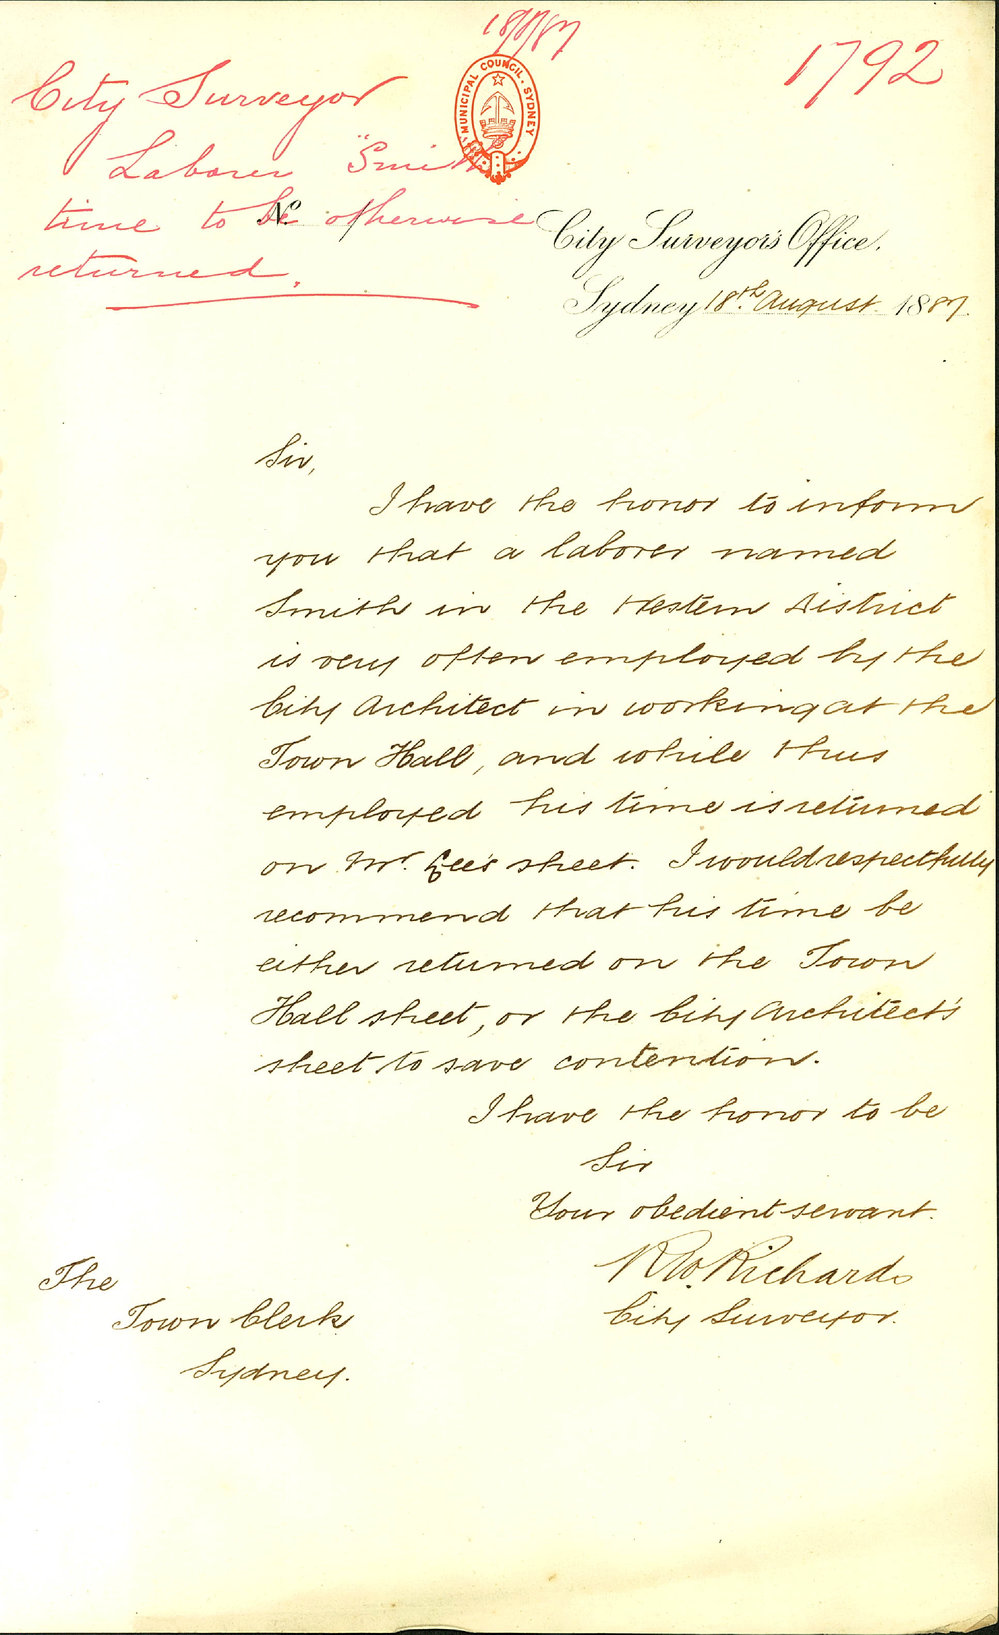 18/8/87
1792
City Surveyor
Laborer "Smith"
time to be otherwise
returned.
MUNICIPAL COUNCIL. SYDNEY
No.
City Surveyor's Office.
Sydney 18th. August. 1887.
Sir,
I have the honor to inform
you that a laborer named
Smith in the Western District
is very often employed by the
City Architect in working at the
Town Hall, and while thus
employed his time is returned
on Mr. Lee's sheet. I would respectfully
recommend that his time be
either returned on the Town
Hall sheet, or the City Architect's
sheet to save contention.
I have the honor to be
Sir
Your obedient servant.
R W. Richards
City Surveyor.
The
Town Clerk
Sydney.